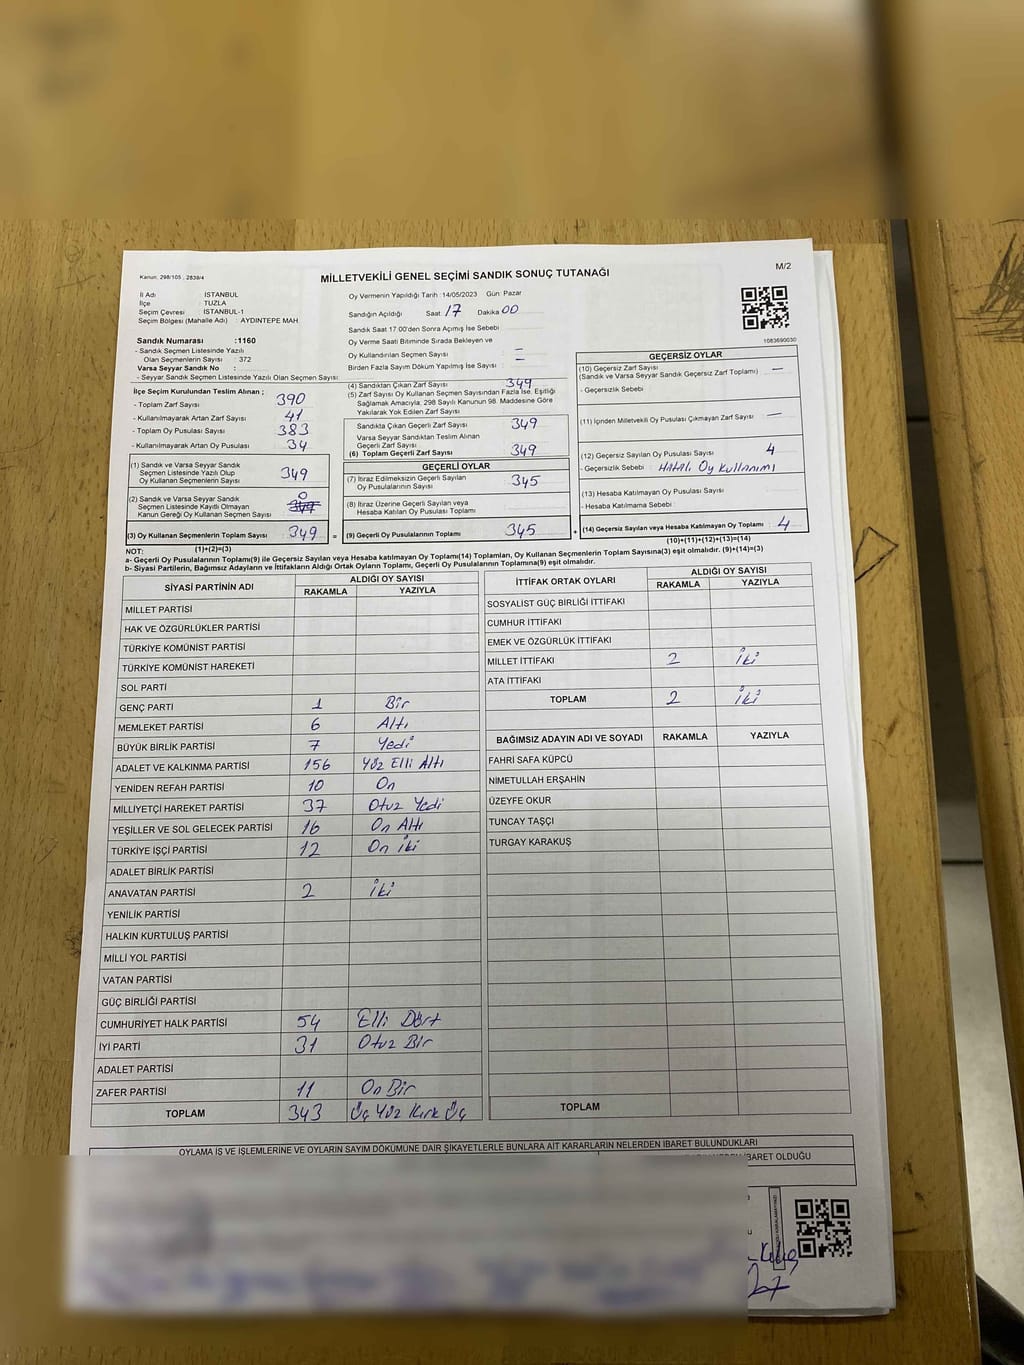 Kanun: 298/105 , 2839/4
MİLLETVEKİLİ GENEL SEÇİMİ SANDIK SONUÇ TUTANAĞI
M/2
İl Adı : İSTANBUL
İlçe : TUZLA
Seçim Çevresi : İSTANBUL-1
Seçim Bölgesi (Mahalle Adı) : AYDINTEPE MAH.
Sandık Numarası :1160
- Sandık Seçmen Listesinde Yazılı
Olan Seçmenlerin Sayısı : 372
Varsa Seyyar Sandık No :
- Seyyar Sandık Seçmen Listesinde Yazılı Olan Seçmen Sayısı
İlçe Seçim Kurulundan Teslim Alınan ;
- Toplam Zarf Sayısı 390
- Kullanılmayarak Artan Zarf Sayısı 41
- Toplam Oy Pusulası Sayısı 383
- Kullanılmayarak Artan Oy Pusulası 34
(1) Sandık ve Varsa Seyyar Sandık
Seçmen Listesinde Yazılı Olup
Oy Kullanan Seçmen Sayısı 349
(2) Sandık ve Varsa Seyyar Sandık
Seçmen Listesinde Kayıtlı Olmayan
Kanun Gereği Oy Kullanan Seçmen Sayısı 0
(3) Oy Kullanan Seçmenlerin Toplam Sayısı 349 =
(1)+(2)=(3)
Oy Vermenin Yapıldığı Tarih :14/05/2023 Gün: Pazar
Sandığın Açıldığı Saat 17 Dakika 00
Sandık Saat 17.00'den Sonra Açılmış İse Sebebi
Oy Verme Saati Bitiminde Sırada Bekleyen ve
Oy Kullandırılan Seçmen Sayısı —
Birden Fazla Sayım Döküm Yapılmış İse Sayısı —
(4) Sandıktan Çıkan Zarf Sayısı 349
(5) Zarf Sayısı Oy Kullanan Seçmen Sayısından Fazla İse, Eşitliği
Sağlamak Amacıyla, 298 Sayılı Kanunun 98. Maddesine Göre
Yakılarak Yok Edilen Zarf Sayısı
Sandıkta Çıkan Geçerli Zarf Sayısı 349
Varsa Seyyar Sandıktan Teslim Alınan
Geçerli Zarf Sayısı
(6) Toplam Geçerli Zarf Sayısı 349
GEÇERLİ OYLAR
(7) İtiraz Edilmeksizin Geçerli Sayılan
Oy Pusulalarının Sayısı 345
(8) İtiraz Üzerine Geçerli Sayılan veya
Hesaba Katılan Oy Pusulası Toplamı
(9) Geçerli Oy Pusulalarının Toplamı 345 +
1083690030
GEÇERSİZ OYLAR
(10) Geçersiz Zarf Sayısı —
(Sandık ve Varsa Seyyar Sandık Geçersiz Zarf Toplamı)
- Geçersizlik Sebebi
(11) İçinden Milletvekili Oy Pusulası Çıkmayan Zarf Sayısı —
(12) Geçersiz Sayılan Oy Pusulası Sayısı 4
- Geçersizlik Sebebi : Hatalı Oy Kullanımı
(13) Hesaba Katılmayan Oy Pusulası Sayısı
- Hesaba Katılmama Sebebi
(14) Geçersiz Sayılan veya Hesaba Katılmayan Oy Toplamı 4
(10)+(11)+(12)+(13)=(14)
NOT:
a- Geçerli Oy Pusulalarının Toplamı(9) ile Geçersiz Sayılan veya Hesaba katılmayan Oy Toplamı(14) Toplamları, Oy Kullanan Seçmenlerin Toplam Sayısına(3) eşit olmalıdır. (9)+(14)=(3)
b- Siyasi Partilerin, Bağımsız Adayların ve İttifakların Aldığı Ortak Oyların Toplamı, Geçerli Oy Pusulalarının Toplamına(9) eşit olmalıdır.
SİYASİ PARTİNİN ADI ALDIĞI OY SAYISI
RAKAMLA YAZIYLA
MİLLET PARTİSİ
HAK VE ÖZGÜRLÜKLER PARTİSİ
TÜRKİYE KOMÜNİST PARTİSİ
TÜRKİYE KOMÜNİST HAREKETİ
SOL PARTİ
GENÇ PARTİ 1 Bir
MEMLEKET PARTİSİ 6 Altı
BÜYÜK BİRLİK PARTİSİ 7 Yedi
ADALET VE KALKINMA PARTİSİ 156 Yüz Elli Altı
YENİDEN REFAH PARTİSİ 10 On
MİLLİYETÇİ HAREKET PARTİSİ 37 Otuz Yedi
YEŞİLLER VE SOL GELECEK PARTİSİ 16 On Altı
TÜRKİYE İŞÇİ PARTİSİ 12 On İki
ADALET BİRLİK PARTİSİ
ANAVATAN PARTİSİ 2 İki
YENİLİK PARTİSİ
HALKIN KURTULUŞ PARTİSİ
MİLLİ YOL PARTİSİ
VATAN PARTİSİ
GÜÇ BİRLİĞİ PARTİSİ
CUMHURİYET HALK PARTİSİ 54 Elli Dört
İYİ PARTİ 31 Otuz Bir
ADALET PARTİSİ
ZAFER PARTİSİ 11 On Bir
TOPLAM 343 Üç Yüz Kırk Üç
İTTİFAK ORTAK OYLARI ALDIĞI OY SAYISI
RAKAMLA YAZIYLA
SOSYALİST GÜÇ BİRLİĞİ İTTİFAKI
CUMHUR İTTİFAKI
EMEK VE ÖZGÜRLÜK İTTİFAKI
MİLLET İTTİFAKI 2 İki
ATA İTTİFAKI
TOPLAM 2 İki
BAĞIMSIZ ADAYIN ADI VE SOYADI RAKAMLA YAZIYLA
FAHRİ SAFA KÜPCÜ
NİMETULLAH ERŞAHİN
ÜZEYFE OKUR
TUNCAY TAŞÇI
TURGAY KARAKUŞ
TOPLAM
OYLAMA İŞ VE İŞLEMLERİNE VE OYLARIN SAYIM DÖKÜMÜNE DAİR ŞİKAYETLERLE BUNLARA AİT KARARLARIN NELERDEN İBARET BULUNDUKLARI
İBARET OLDUĞU